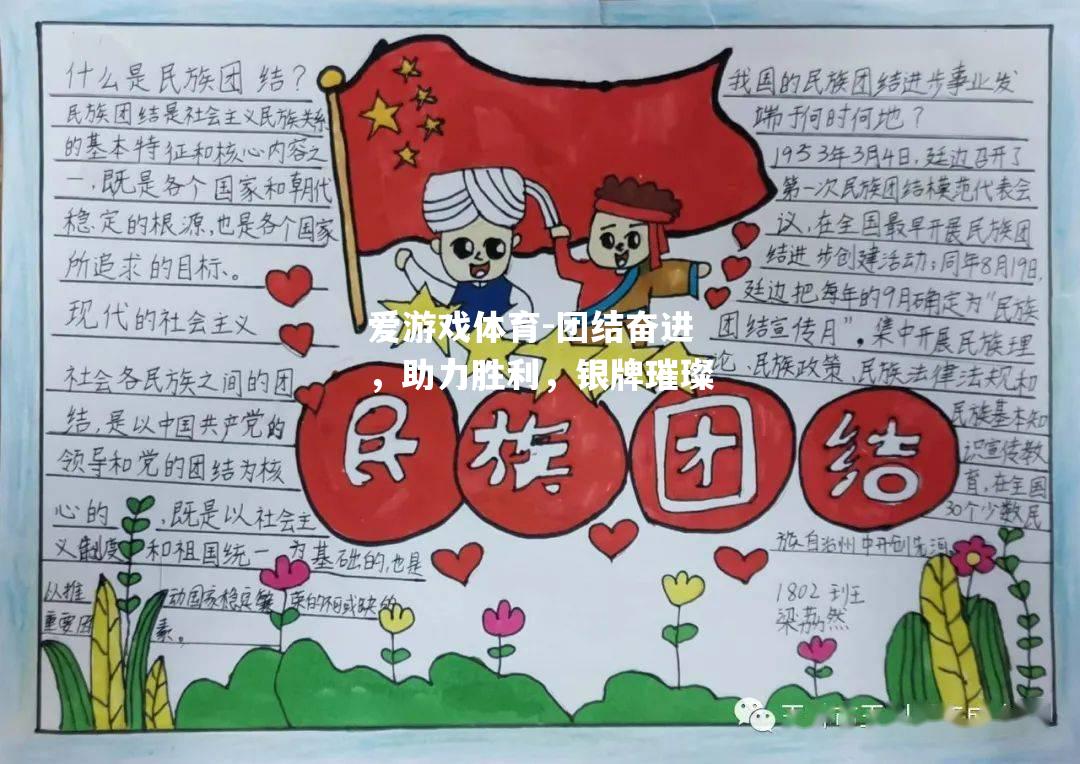 什么是民族团结？
民族团结是社会主义民族关系
的基本特征和核心内容之
一，既是各个国家和朝代
稳定的根源，也是各个国家
所追求的目标。
现代的社会主义
社会各民族之间的团
结，是以中国共产党的
领导和党的团结为核
心的，既是以社会主
义制度和祖国统一为基础的，也是
从推动国家稳定繁荣的不可或缺的
重要因素。
我国的民族团结进步事业发
端于何时何地？
1953年3月4日，廷边召开了
第一次民族团结模范代表会
议，在全国最早开展民族团
结进步创建活动；同年8月19日，
廷边把每年的9月确定为“民族
团结宣传月”，集中开展民族理
论、民族政策、民族法律法规和
民族基本知
识宣传教
育，在全国
30个少数民
族自治州中开创先河
1802班
梁荔然
爱游戏体育-团结奋进
，助力胜利，银牌璀璨
民族团结